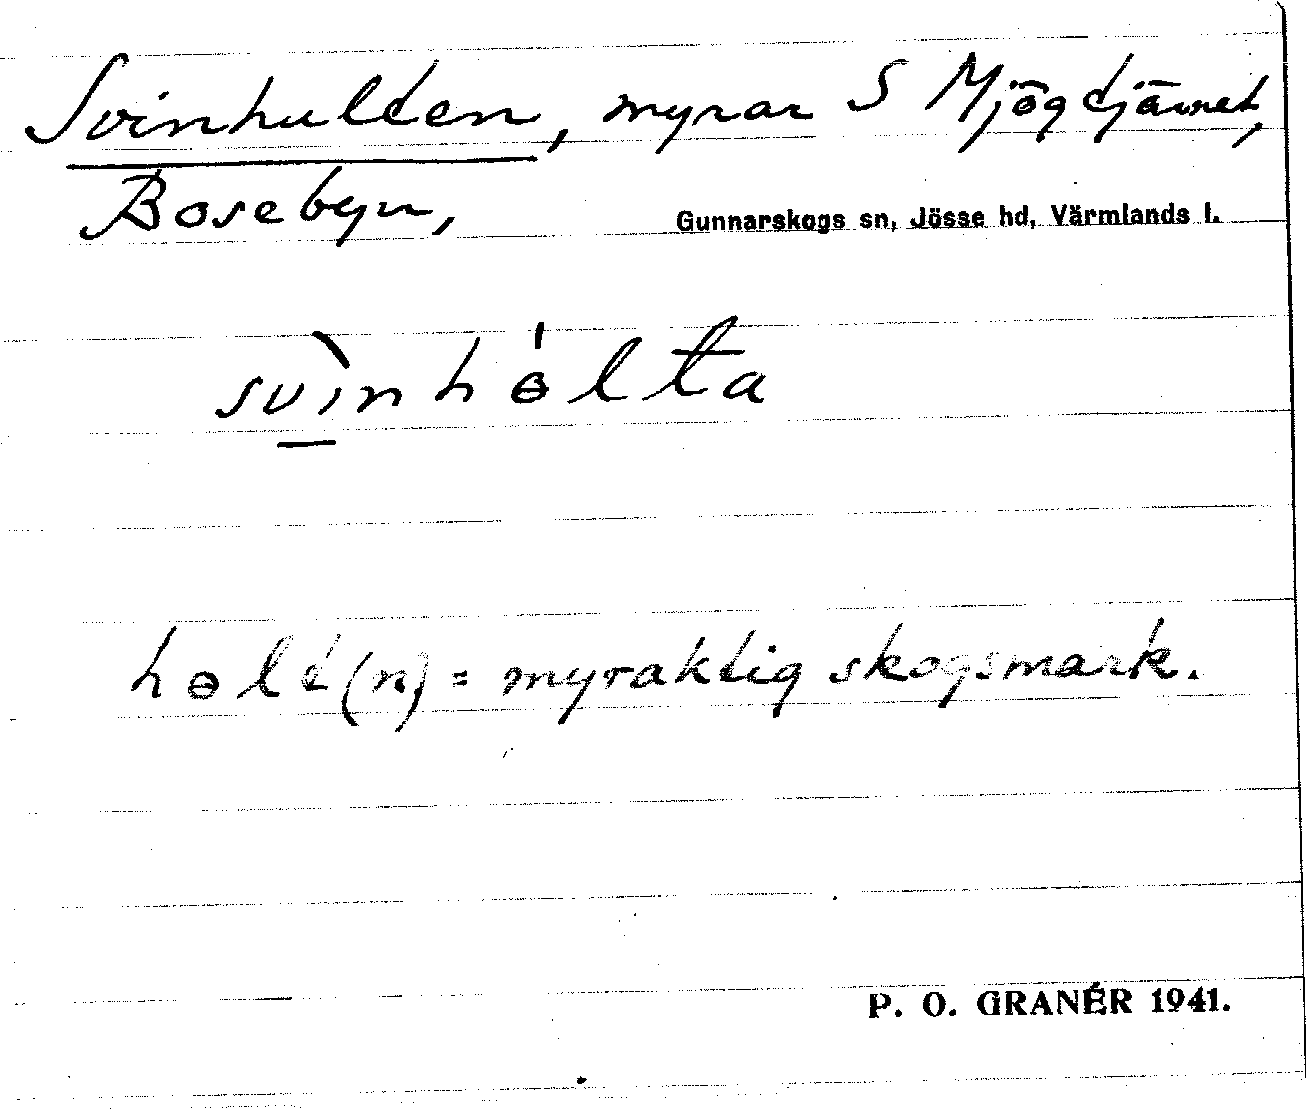 Svinhulten, myrar S Mjögtjärnet,
Bosebyn,
Gunnarskogs sn, Jösse hd, Värmlands l.
svìnhɵ́lta
hɵlt(n) = myraktig skogsmark.
P. O. GRANÉR 1941.